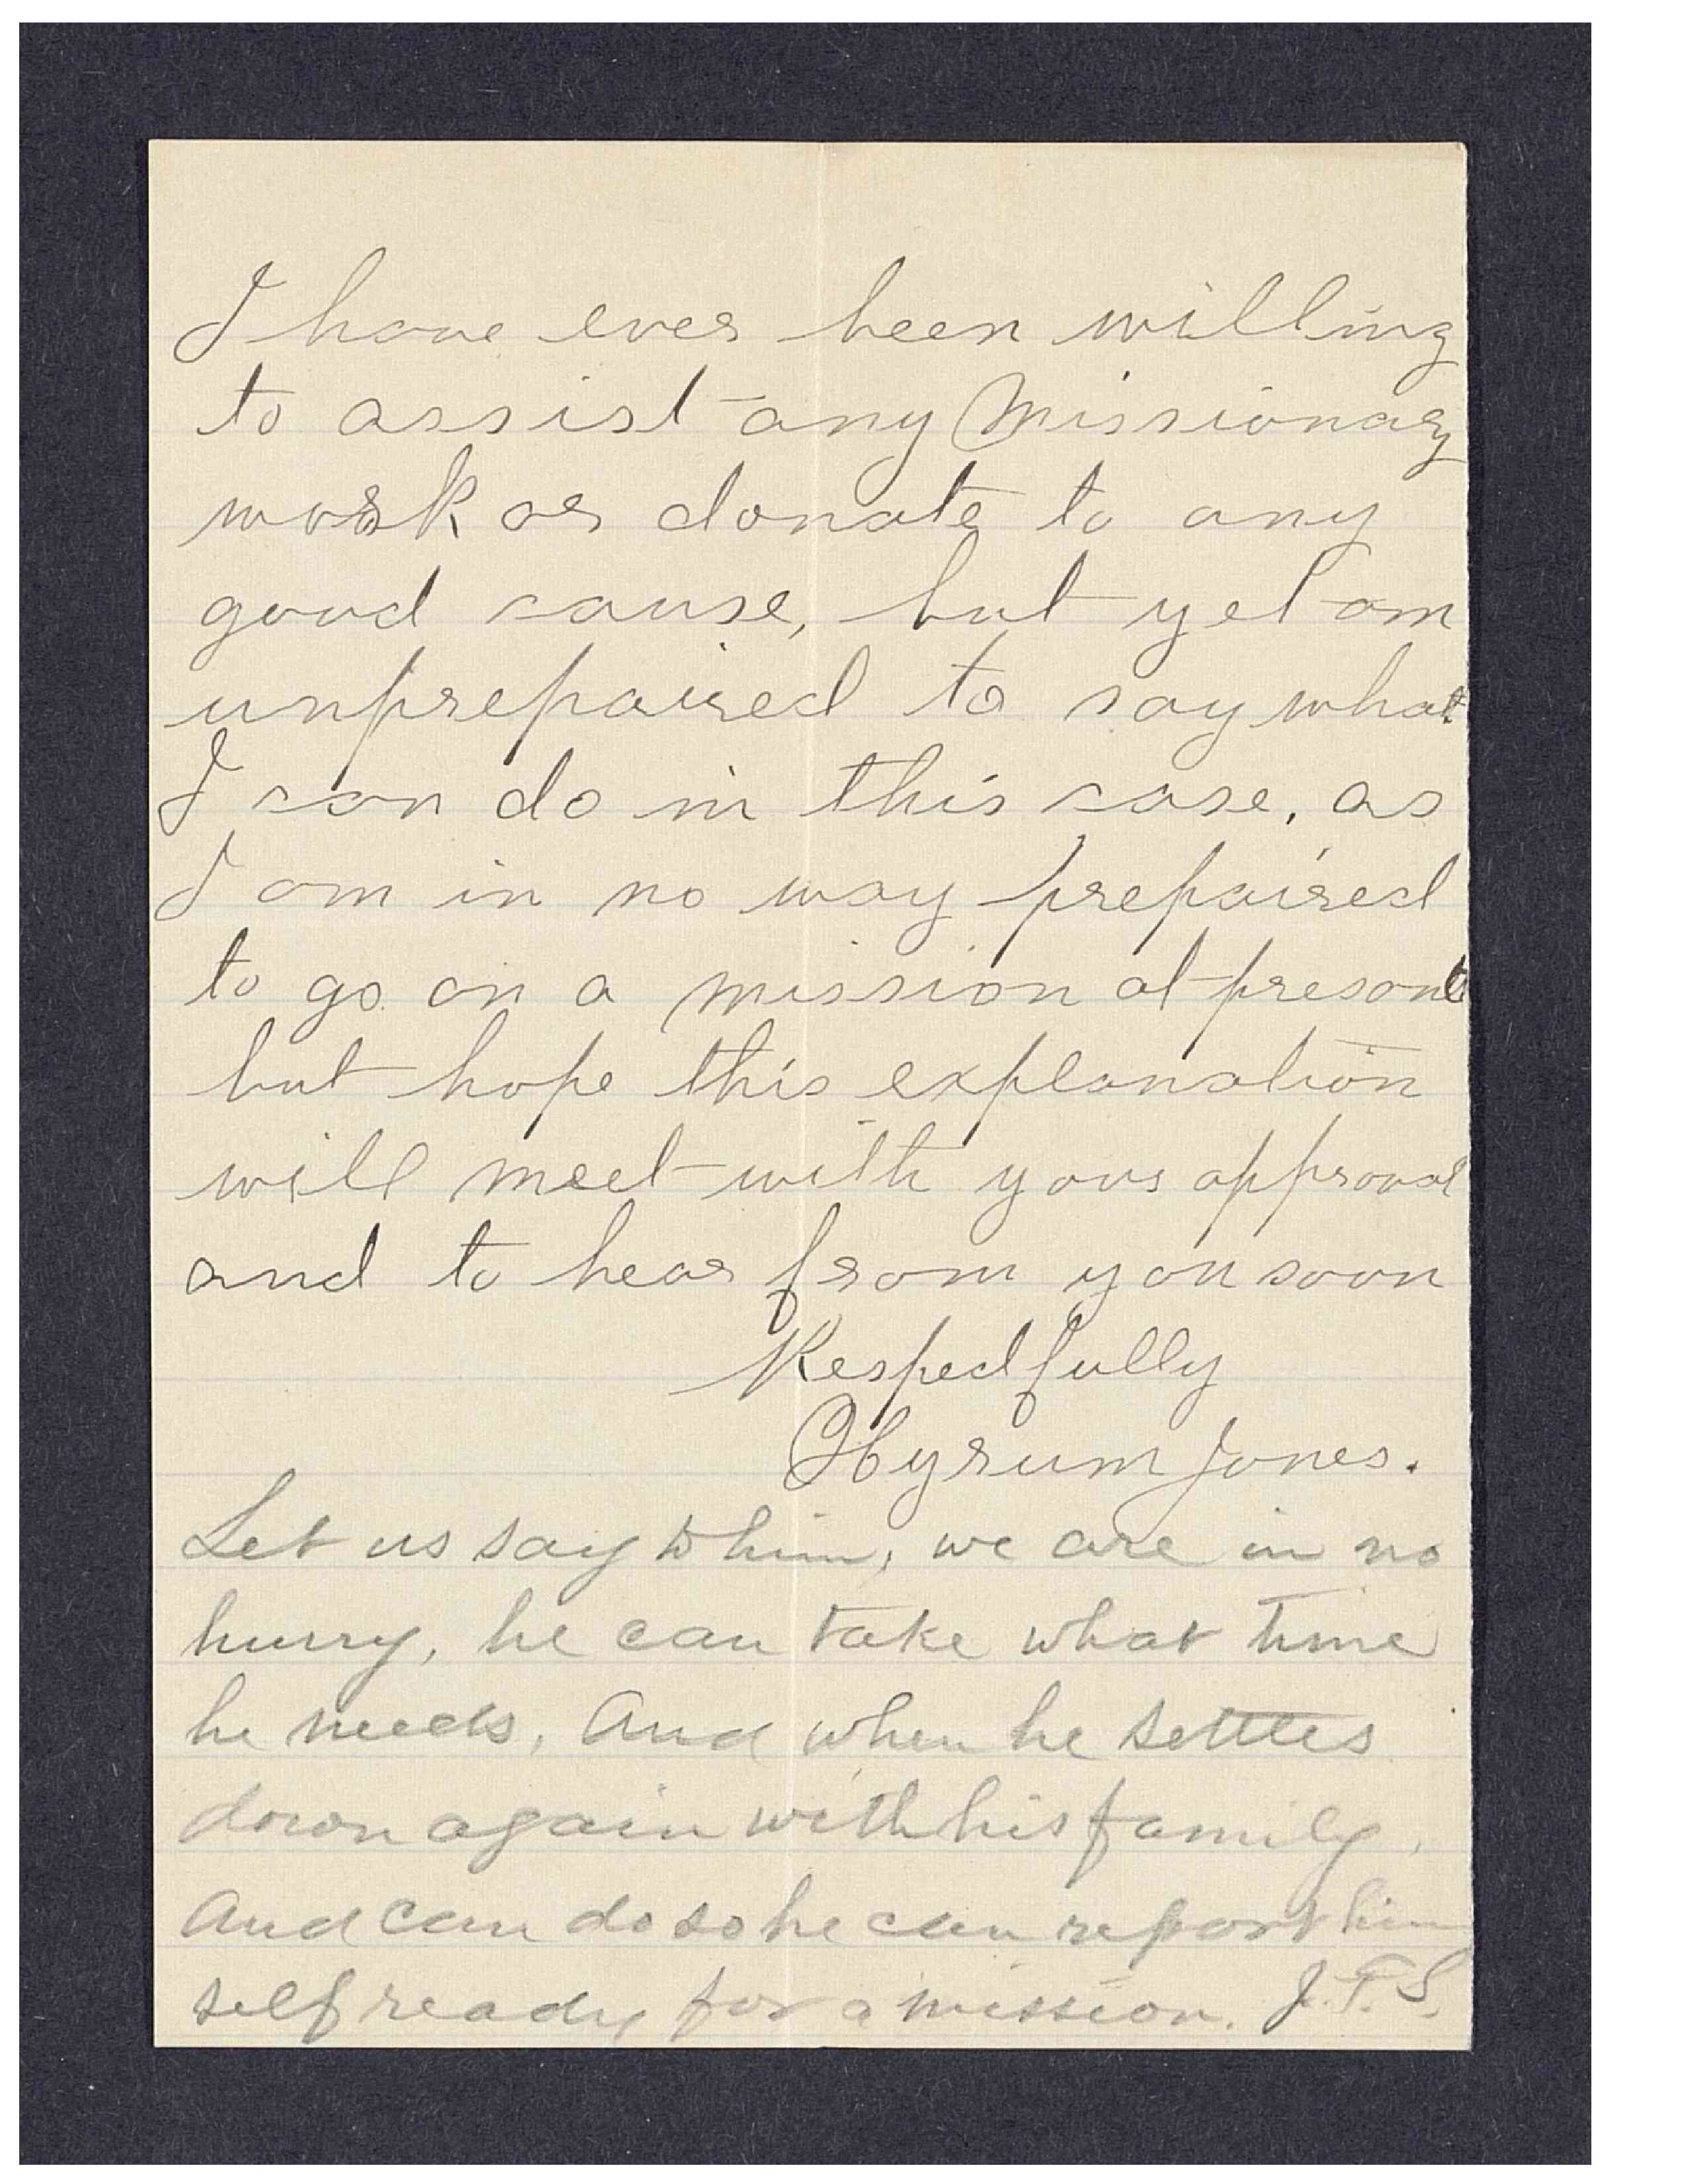 I have ever been willing
to assist any Missionary
work or donate to any
good cause, but yet am
unprepaired to say what
I can do in this case, as
I am in no way prepaired
to go on a mission at presant
but hope this explanation
will meet with your approval
and to hear from you soon
Respectfully
Hyrum Jones.
Let us say to him, we are in no
hurry, he can take what time
he needs, And when he settles
down again with his family,
And can do so he can report him
self ready for a mission. J.F.S.